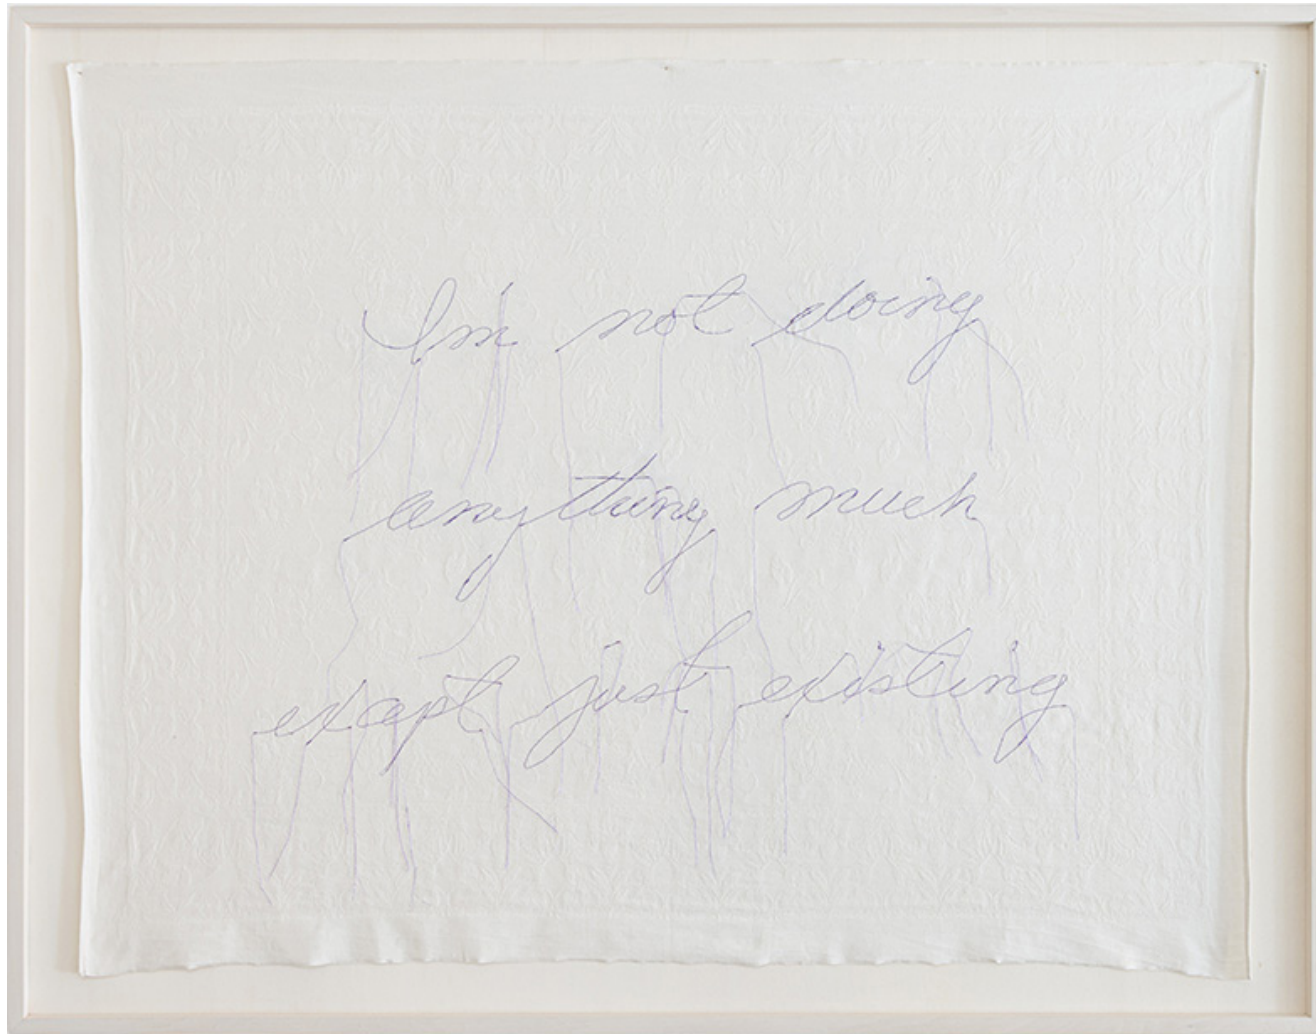 Im not doing
anything much
exapt just existing